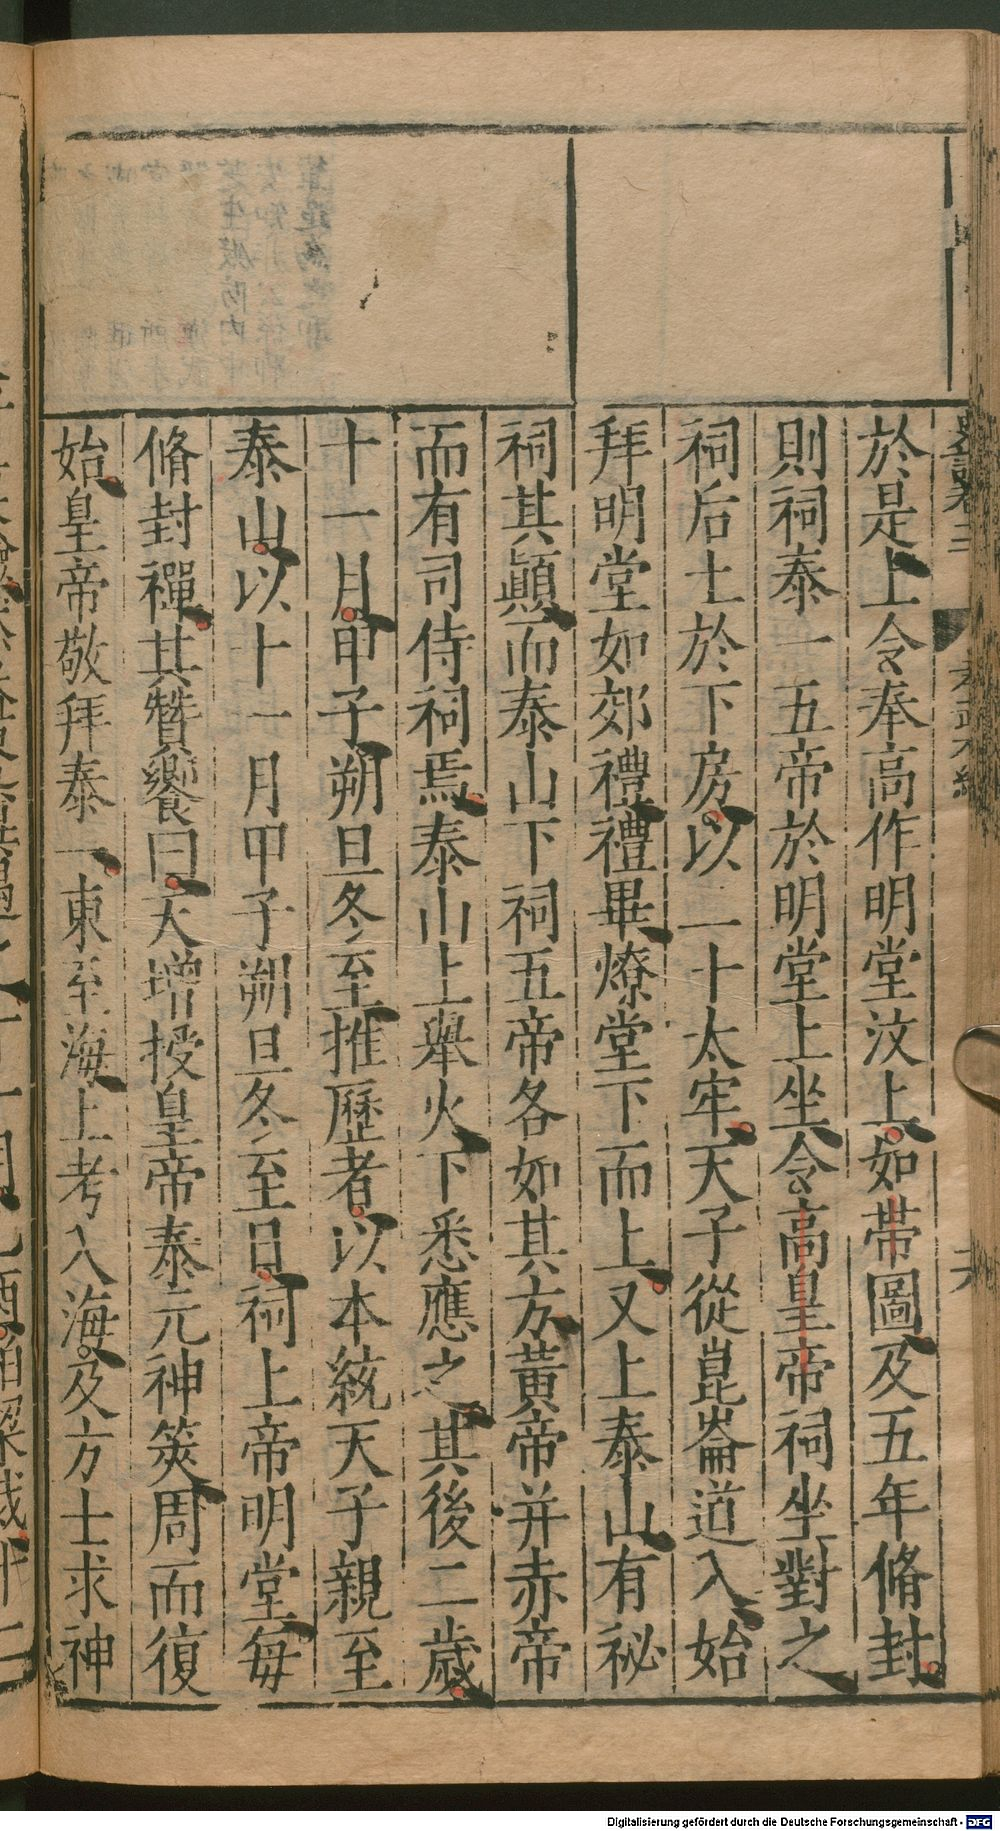 於是上令奉高作明堂汶上如帶圖及五年脩封
則祠泰一五帝於明堂上坐令高皇帝祠坐對之
祠后土於下房以二十太牢天子從崑崙道入始
拜明堂如郊禮禮畢燎堂下而上又上泰山有祕
祠其顛而泰山下祠五帝各如其方黃帝并赤帝
而有司侍祠焉泰山上舉火下悉應之其後二歲
十一月甲子朔旦冬至推歷者以本統天子親至
泰山以十一月甲子朔旦冬至日祠上帝明堂每
脩封禪其贊饗曰天增授皇帝泰元神筴周而復
始皇帝敬拜泰一東至海上考入海及方士求神
Digitalisierung gefördert durch die Deutsche Forschungsgemeinschaft - DFG